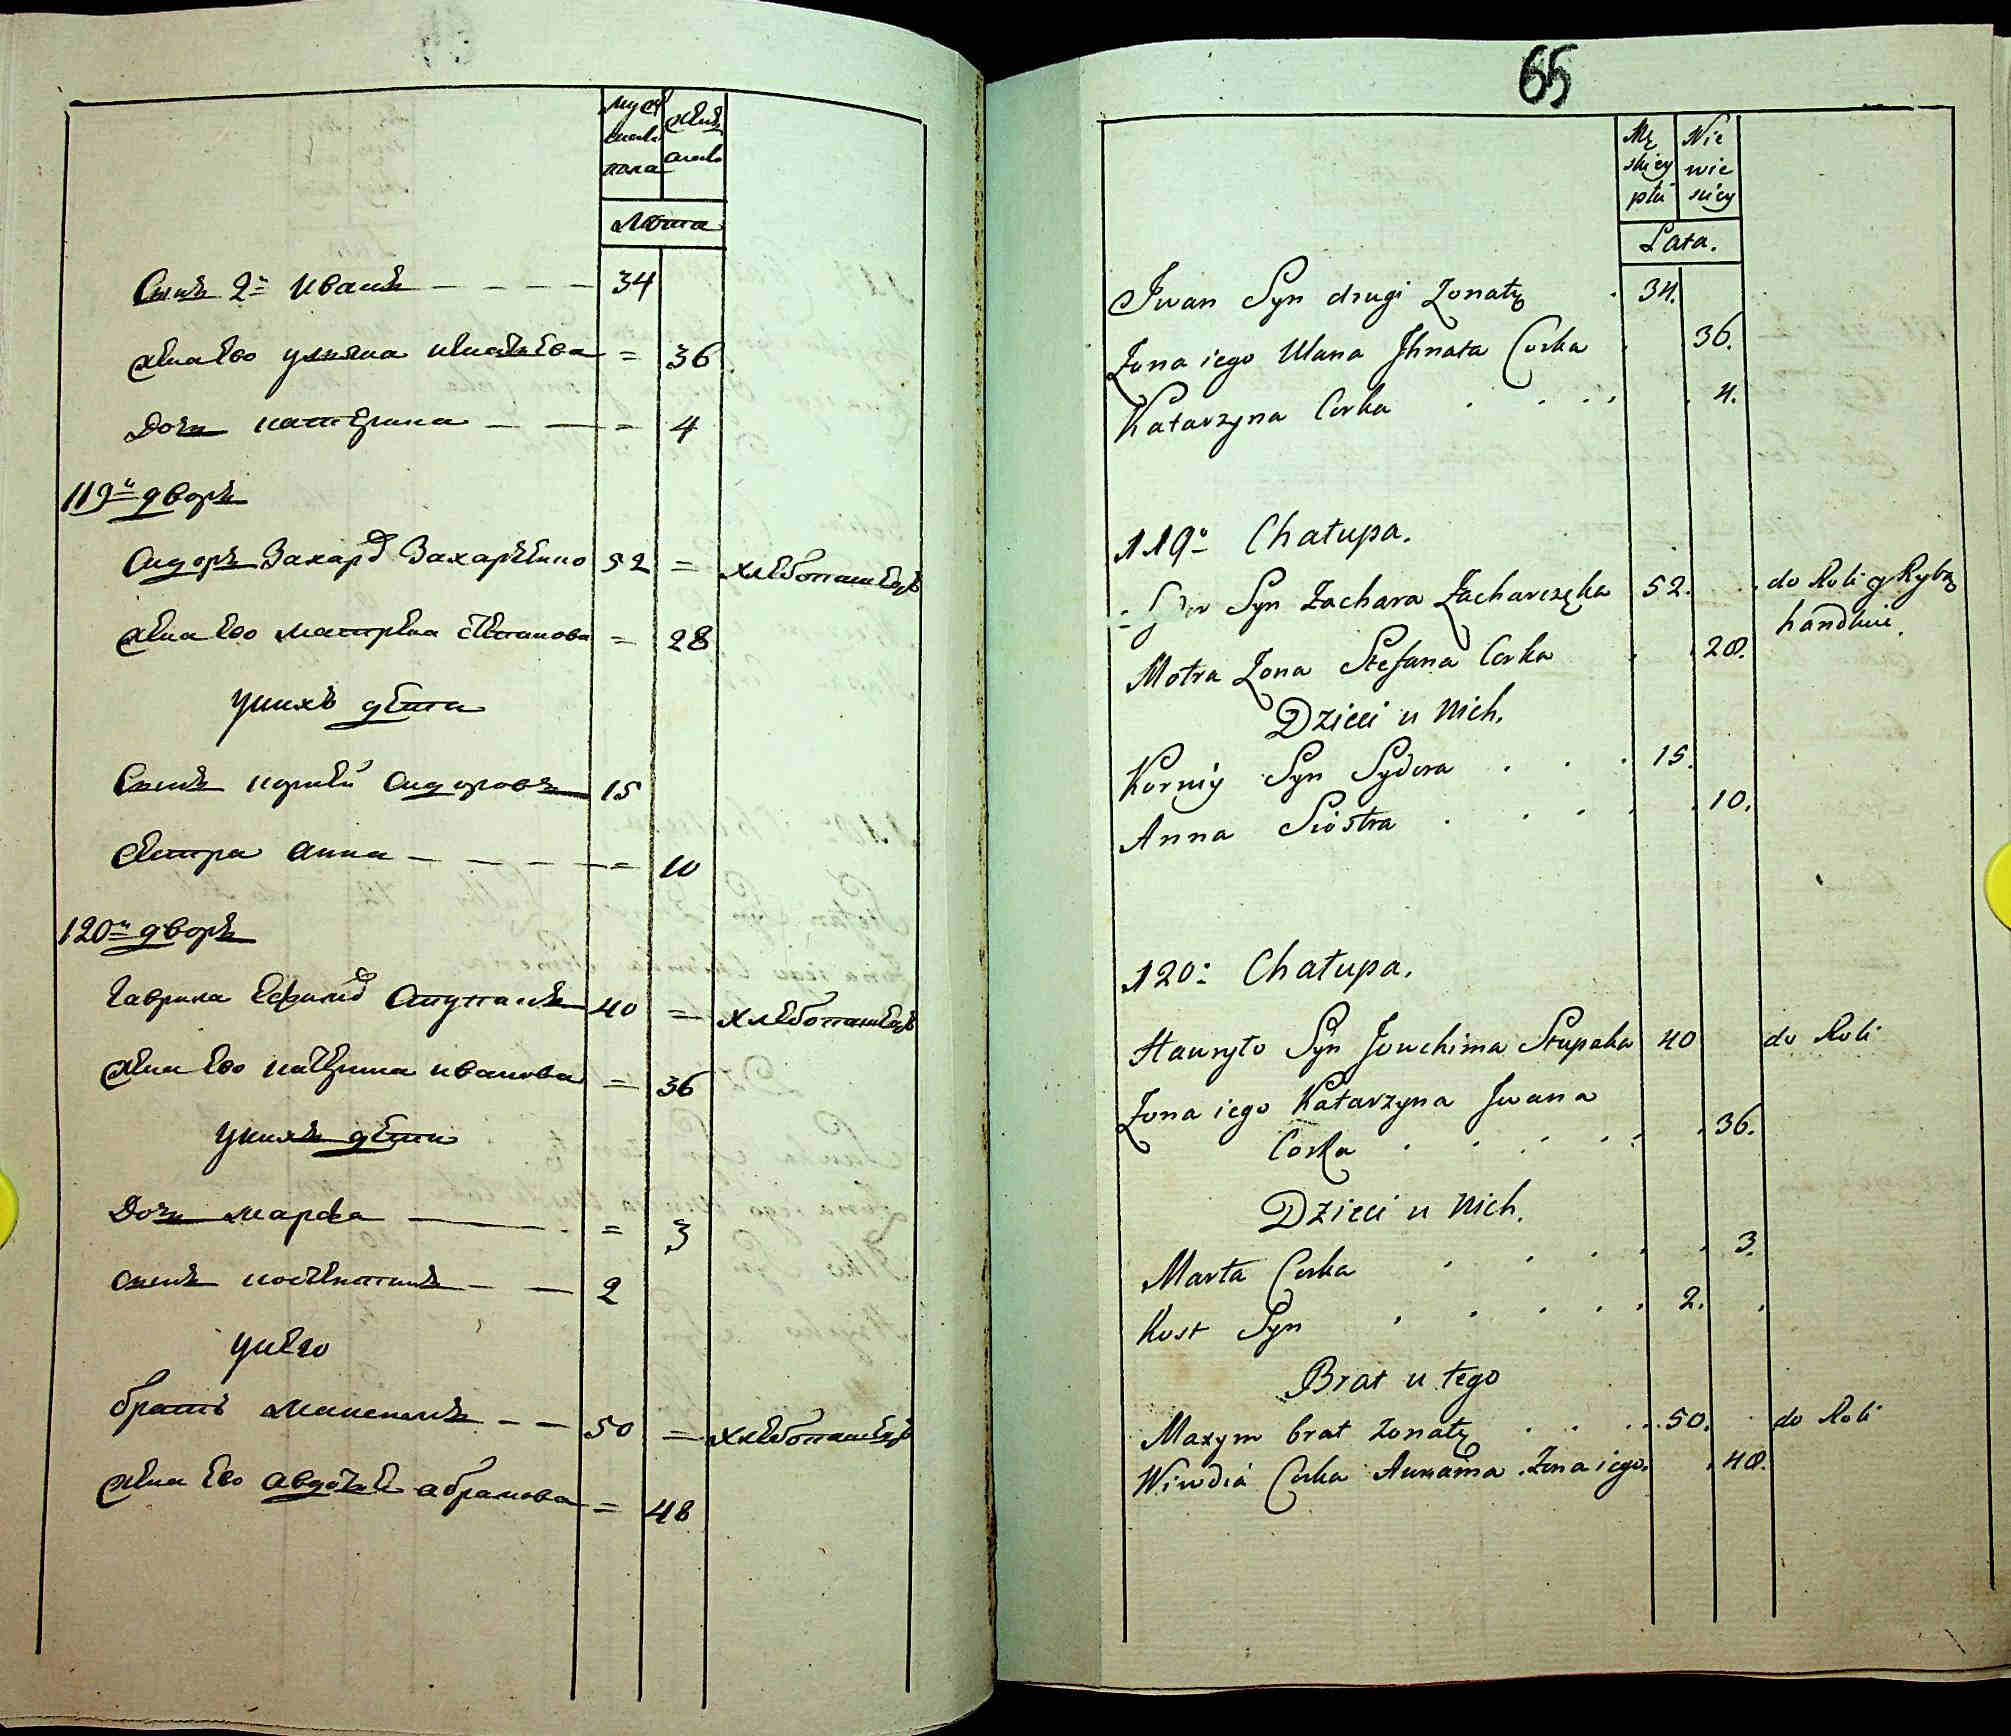 мужеска пола
женска
Лѣта
Сынъ 2й Иванъ — — — — 34
Жена Ево Улияна Игнатьева = 36
Дочь Катерина — — = 4
119й дворъ
Сидоръ Захаръ Захарченко 52 = хлебопашецъ
Жена Ево Матрена Степанова = 28
У них дети
Сынъ Корней Сидоровъ 15
Сестра Анна — — — — = 10
120й дворъ
Гаврила Ефимъ Ступакъ 40 = хлебопашецъ
Жена Ево Катерина Иванова = 36
У них дети
Дочь Марфа — — = 3
Сынъ Костентинъ — — 2
У нево
братъ Максимъ — — 50 = хлебопашецъ
Жена Ево Авдотья Абрамова = 48
65
Mę skiey płci
Nie wie sciey
Lata.
Jwan Syn drugi Zonaty . 34.
Zona iego Ulana Jhnata Corka . 36.
Katarzyna Corka . . . . . 4.
119o Chałupa.
Syn Zachara Zacharczęka 52. . . . do Roli y Rybą
handluie.
Motra Zona Stefana Corka . . 28.
Dzieci u Nich.
Korniy Syn Sydora . . . 15.
Anna Siostra . . . . . 10.
120o Chałupa.
Hawryło Syn Jouchima Stupaka 40 do Roli
Zona iego Katarzyna Jwana
Corka . . . . . . 36.
Dzieci u Nich.
Marta Corka . . . . . 3.
Kost Syn . . . . . 2. .
Brat u tego
Maxym brat zonaty . . . . 50. . do Roli
Wiwdia Corka Awrama Zona iego. . 48.